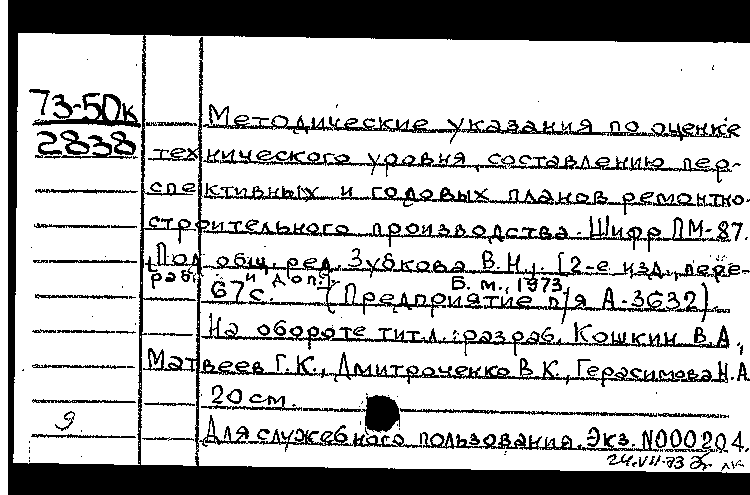 73-50к
2838
Методические указания по оценке
технического уровня, составлению пер-
спективных и годовых планов ремонтно-
строительного производства. Шифр ПМ-87.
Под общ. ред. Зубкова В.Н. [2-е изд., пере-
раб. и доп.]. Б. м., 1973,
67 с. (Предприятие п/я А-3632)
На обороте тит.л.: разраб. Кошкин В.А.,
Матвеев Г.К., Дмитроченко В.К., Герасимова Н.А.
20 см.
9
Для служебного пользования. Экз. N000204.
24.VII-73